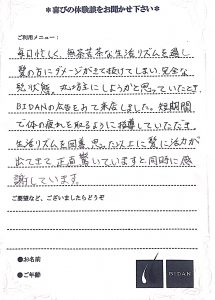 ＊喜びの体験談をお聞かせ下さい＊
ご利用メニュー：
毎日忙しく、無茶苦茶な生活リズムを過し
髪の方にダメージがきて抜けてしまい完全な
禿状態。丸坊主にしようかと思っていたとき、
BIDANの広告をみて来店しました。短期間
で体の疲れを取るように指導していただき、
生活リズムを改善 思った以上に髪に活力が
出てきて正直驚いていますと同時に感
謝しています。
ご要望など、ございましたらどうぞ
●お名前
●ご年齢
BIDAN